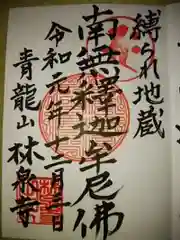 縛られ地蔵
南無釋迦牟尼佛
令和元年十二月三日
青龍山 林泉寺